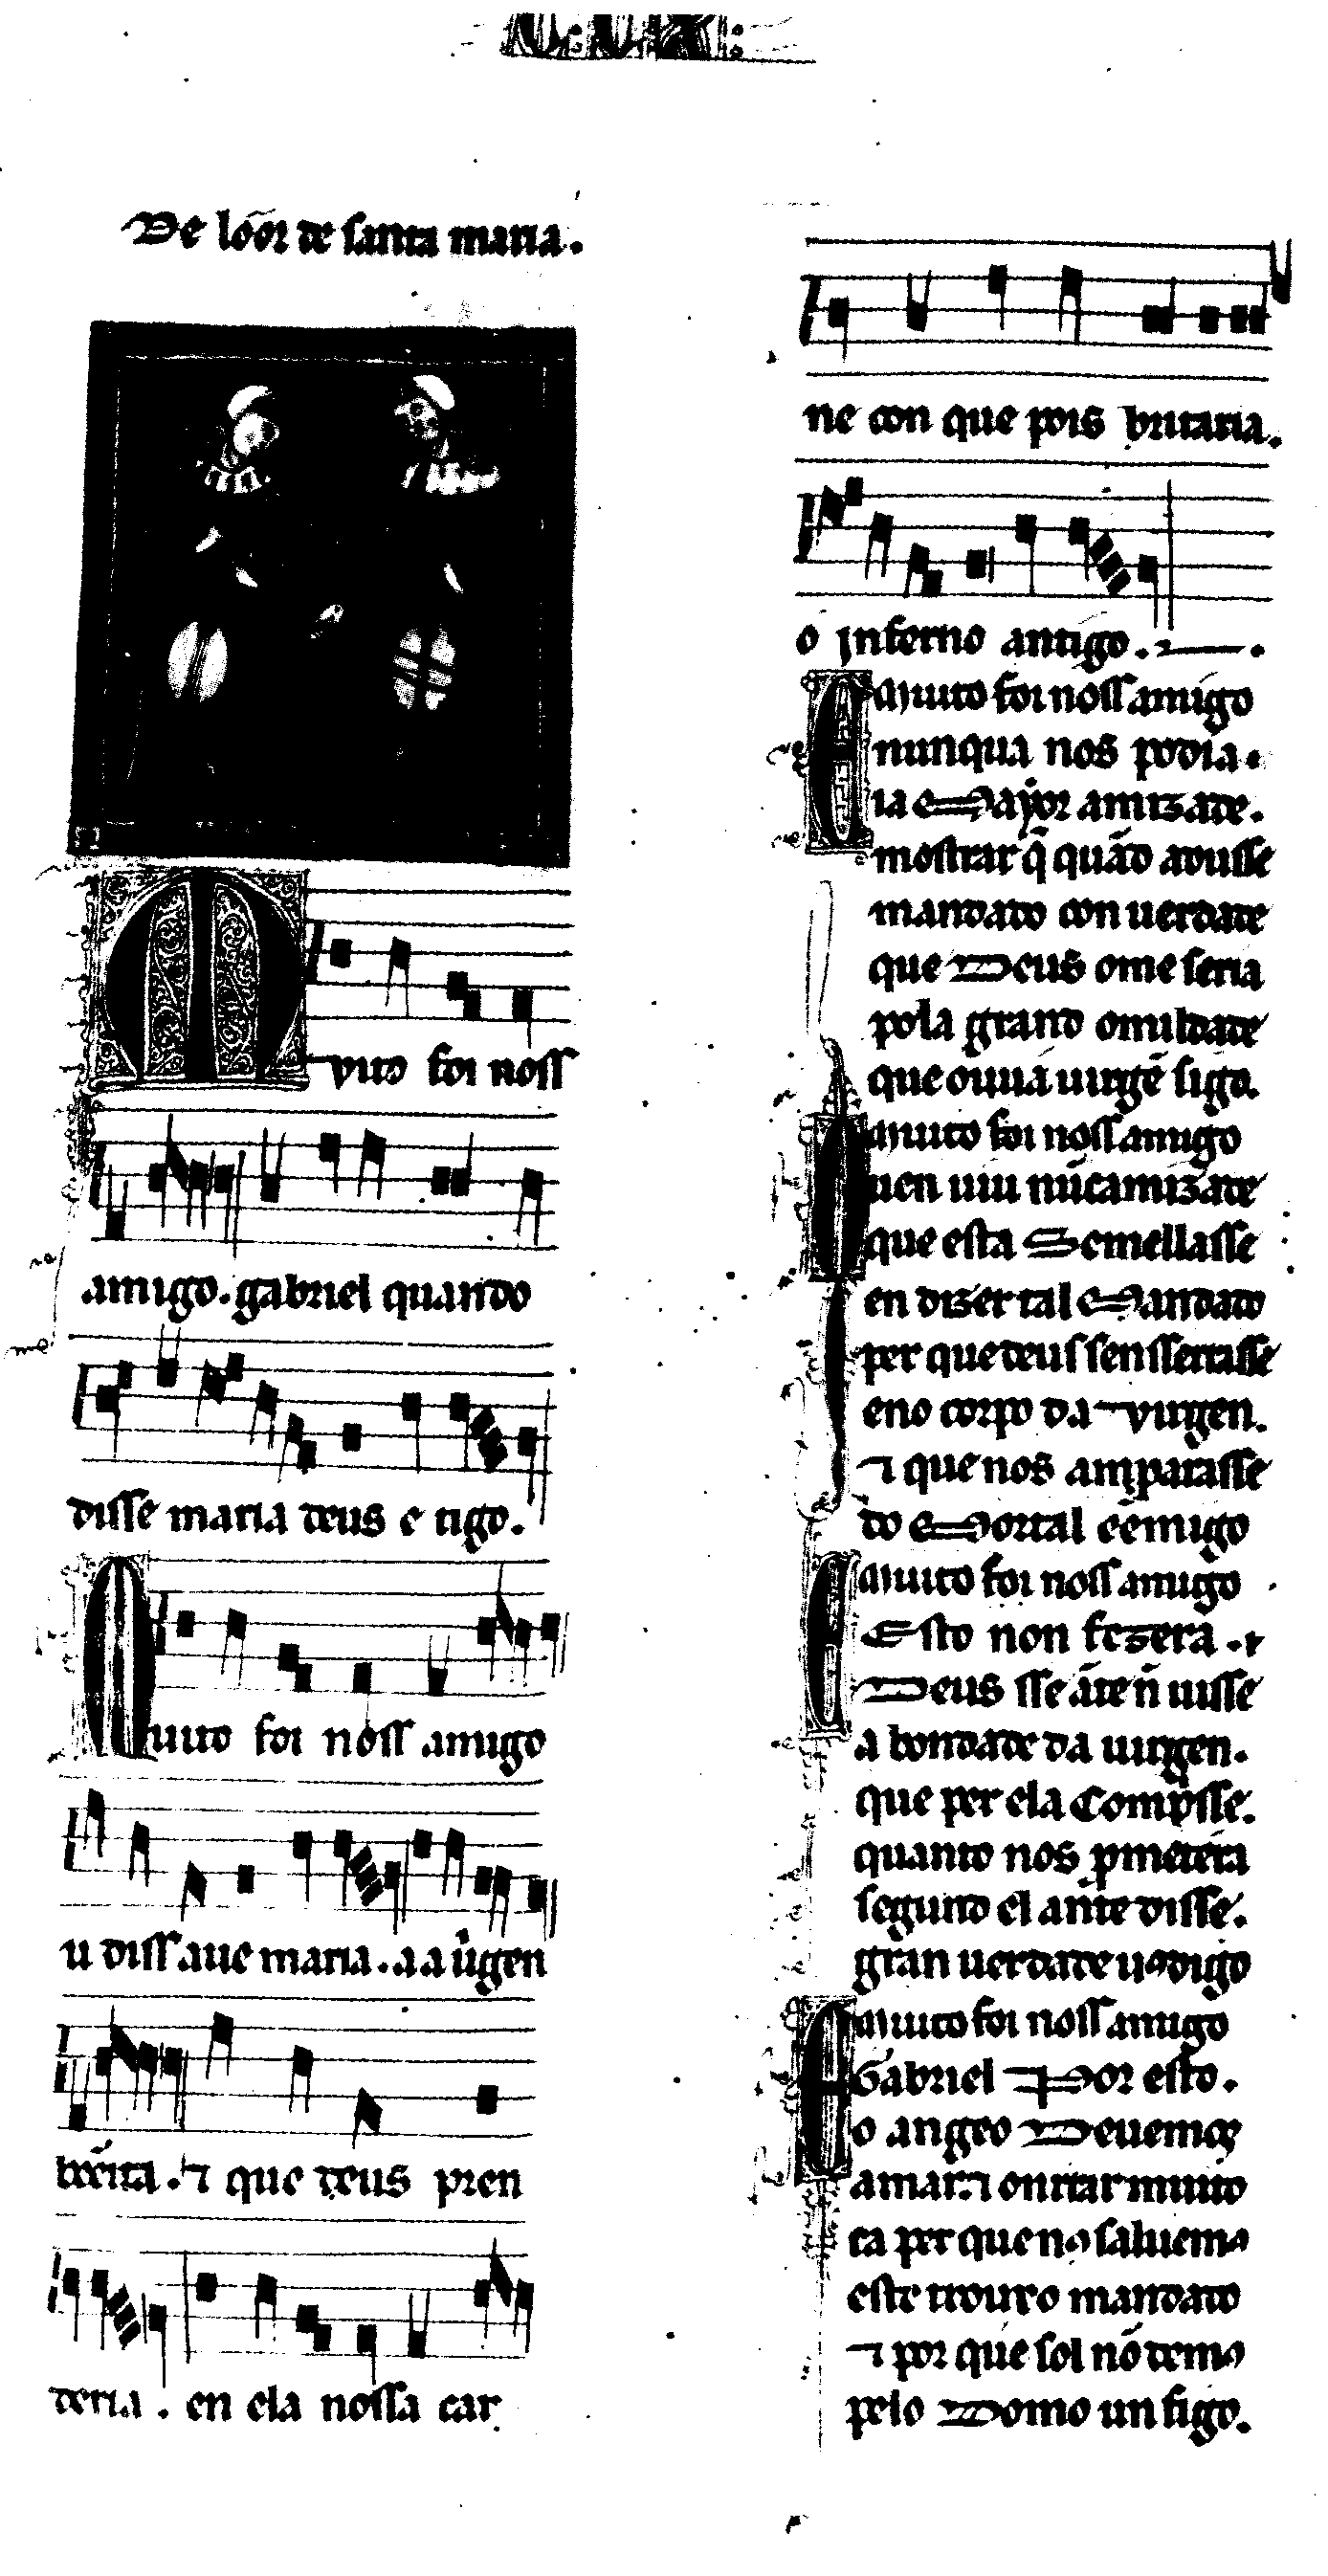 De loor de santa maria.
Muito foi noss
amigo. gabriel quando
disse maria deus e tigo.
Muito foi noss amigo
u diss aue maria. a a uirgen
beeita. ⁊ que deus pren
deria. en ela nossa car
ne con que pois britaria.
o jnferno antigo.
Muito foi noss amigo
nunqua nos podia.
ia Mayor amizade.
mostrar q̃ quãd adusse
mandado con uerdade
que Deus ome seria
pola grand omildade
que ouuá uirgẽ sigo.
Muito foi noss amigo
Quen uiu nũcamizade
que esta Semellasse
en dizer tal Mandado
per que deus senssserrasse
eno corpo da virgen.
⁊ que nos amparasse
do Mortal eẽmigo
Muito foi noss amigo
Esto non fezera.
Deus sse ãte ñ uisse
a bondade da uirgen.
que per ela Comprisse.
quanto nos pmetera
segund el ante disse.
gran uerdade uos digo
Muito foi noss amigo
Gabriel Por esto.
o angeo Deuemos
amar. ⁊ onrrar muito
ca per que nos saluemos
este trouxo mandado
⁊ por que sol nõ demos
pelo Domo un figo.